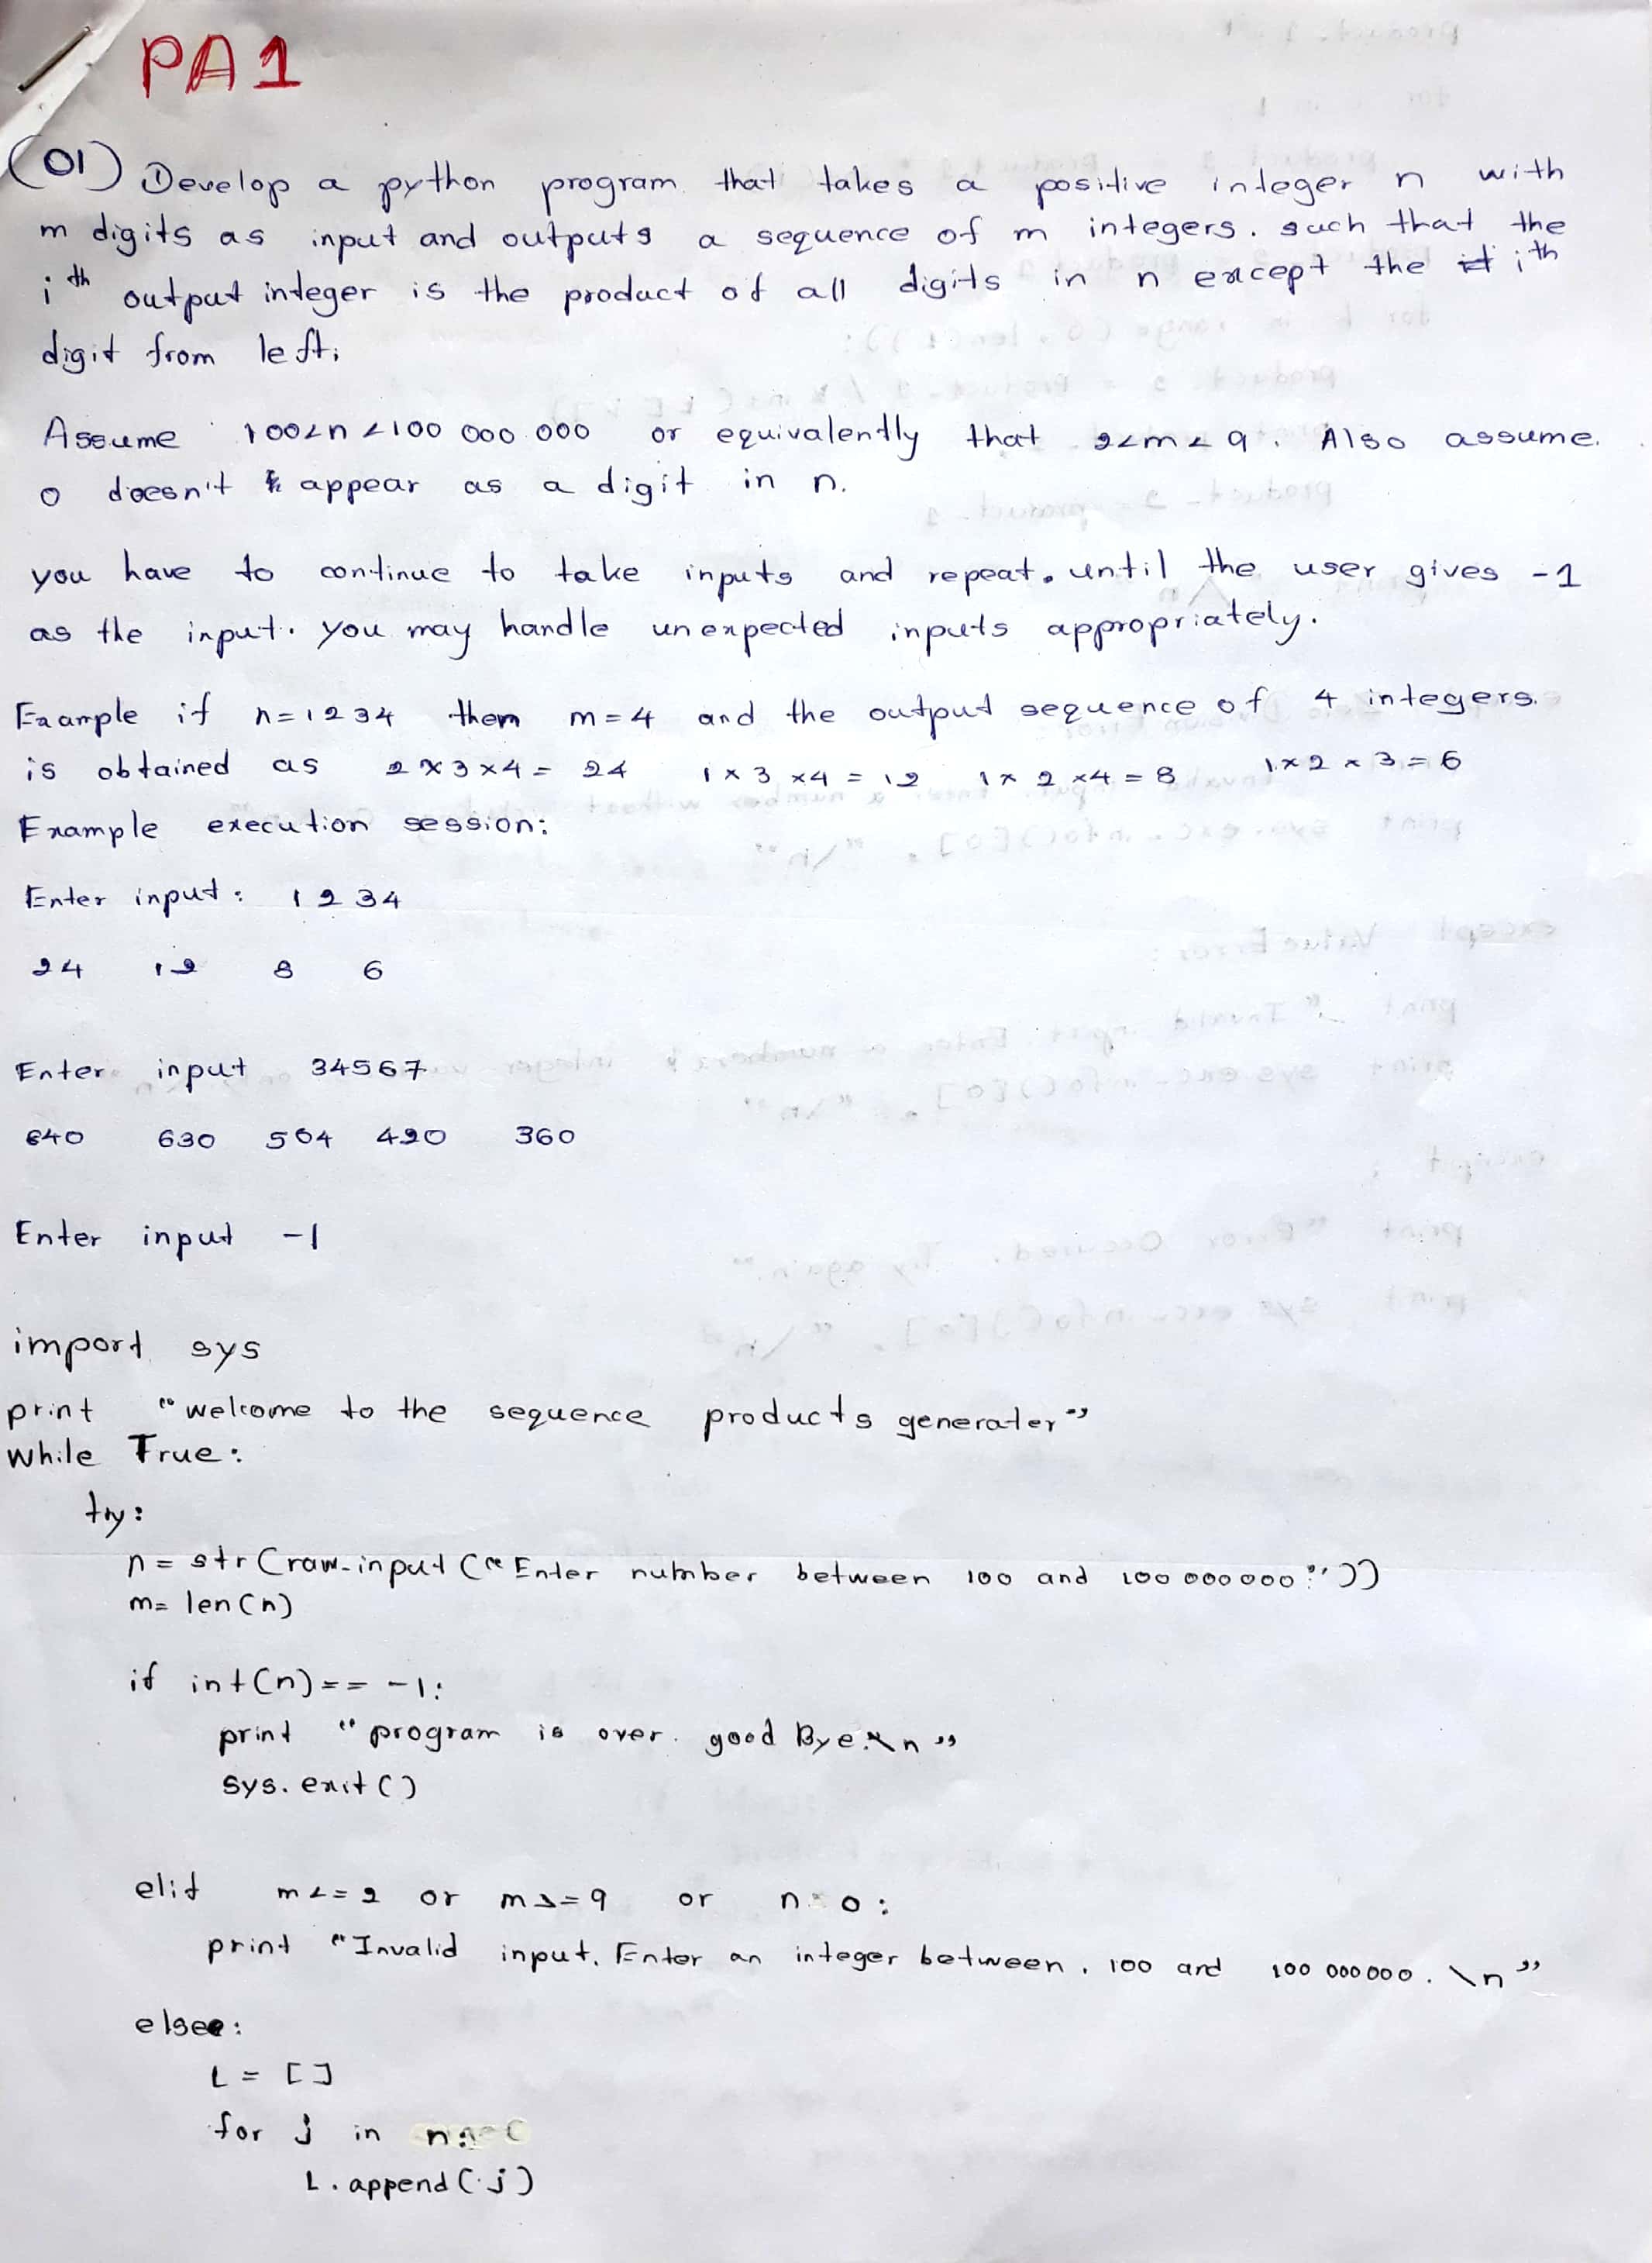 PA1
(01) ① Develop a python program that takes a positive integer n with
m digits as input and outputs a sequence of m integers. such that the
ith output integer is the product of all digits in n except the ith
digit from left.
Assume 100<n<100 000 000 or equivalently that 2<m<9. Also assume.
0 doesn't appear as a digit in n.
you have to continue to take inputs and repeat. until the user gives -1
as the input. you may handle unexpected inputs appropriately.
Example if n=1234 then m=4 and the output sequence of 4 integers.
is obtained as 2x3x4= 24 1x3x4=12 1x2x4=8 1x2x3=6
Example execution session:
Enter input: 1234
24 12 8 6
Enter input 34567
840 630 504 420 360
Enter input -1
import sys
print "welcome to the sequence products generater"
while True:
try:
n= str(raw-input("Enter number between 100 and 100 000 000:"))
m= len(n)
if int(n)== -1:
print "program is over. good Bye.\n"
sys.exit()
elif m<=2 or m>=9 or n 0:
print "Invalid input. Enter an integer between. 100 and 100 000000. \n"
else:
L = []
for j in n:
L.append(j)